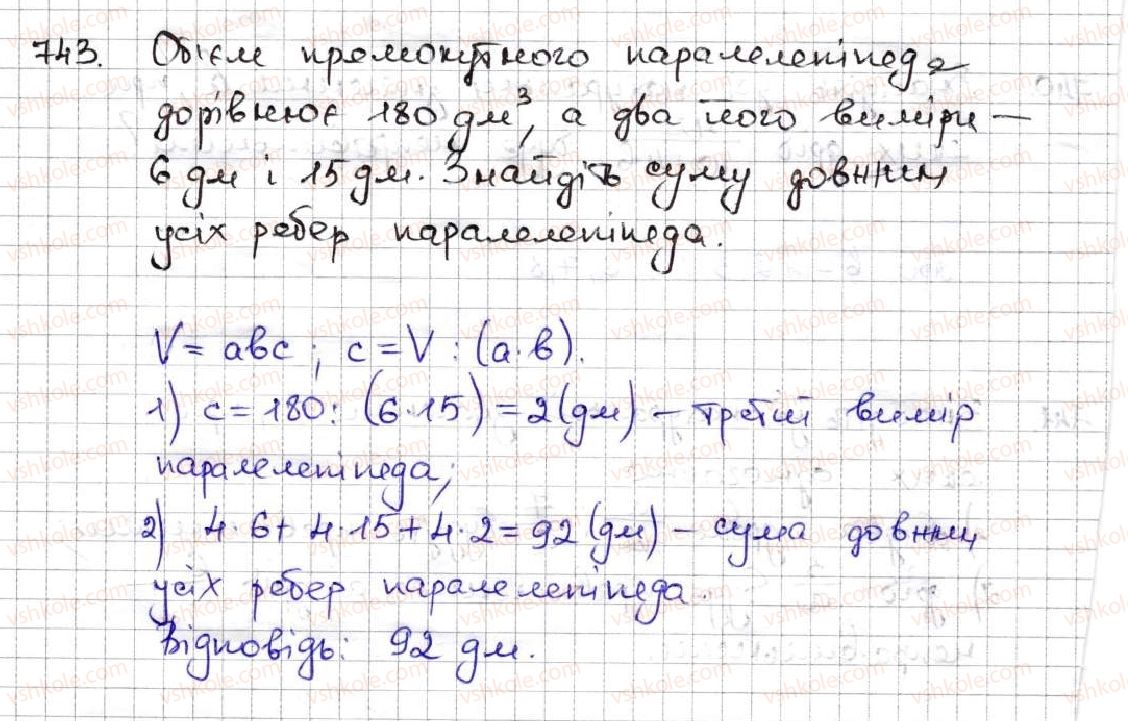 743. Об'єм прямокутного паралелепіпеда
дорівнює 180 дм³, а два його виміри —
6 дм і 15 дм. Знайдіть суму довжин
усіх ребер паралелепіпеда.
V = abc; c = V : (a · b).
1) c = 180 : (6 · 15) = 2 (дм) – третій вимір
паралелепіпеда;
2) 4 · 6 + 4 · 15 + 4 · 2 = 92 (дм) – сума довжин
усіх ребер паралелепіпеда.
Відповідь: 92 дм.
vshkole.com